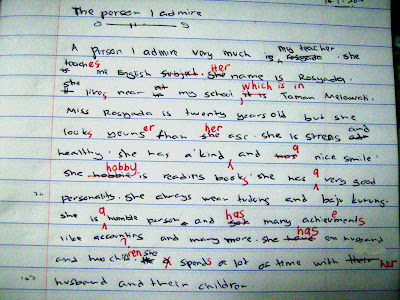 The person I admire
A person I admire very much is my teacher . She
teaches me English subject. Her name is Rosyada.
She lives near at my school which is in Taman Melawati.
Miss Rosyada is twenty years old but she
looks younger than her age. She is strong and
healthy. She has a kind and a nice smile.
She hobby is reading books. She has a very good
personality. She always wear tudung and baju kurung.
She is a humble person and has many achievments
like accounting and many more. She has an husband
and two children. She spends a lot of time with her
husband and their children.